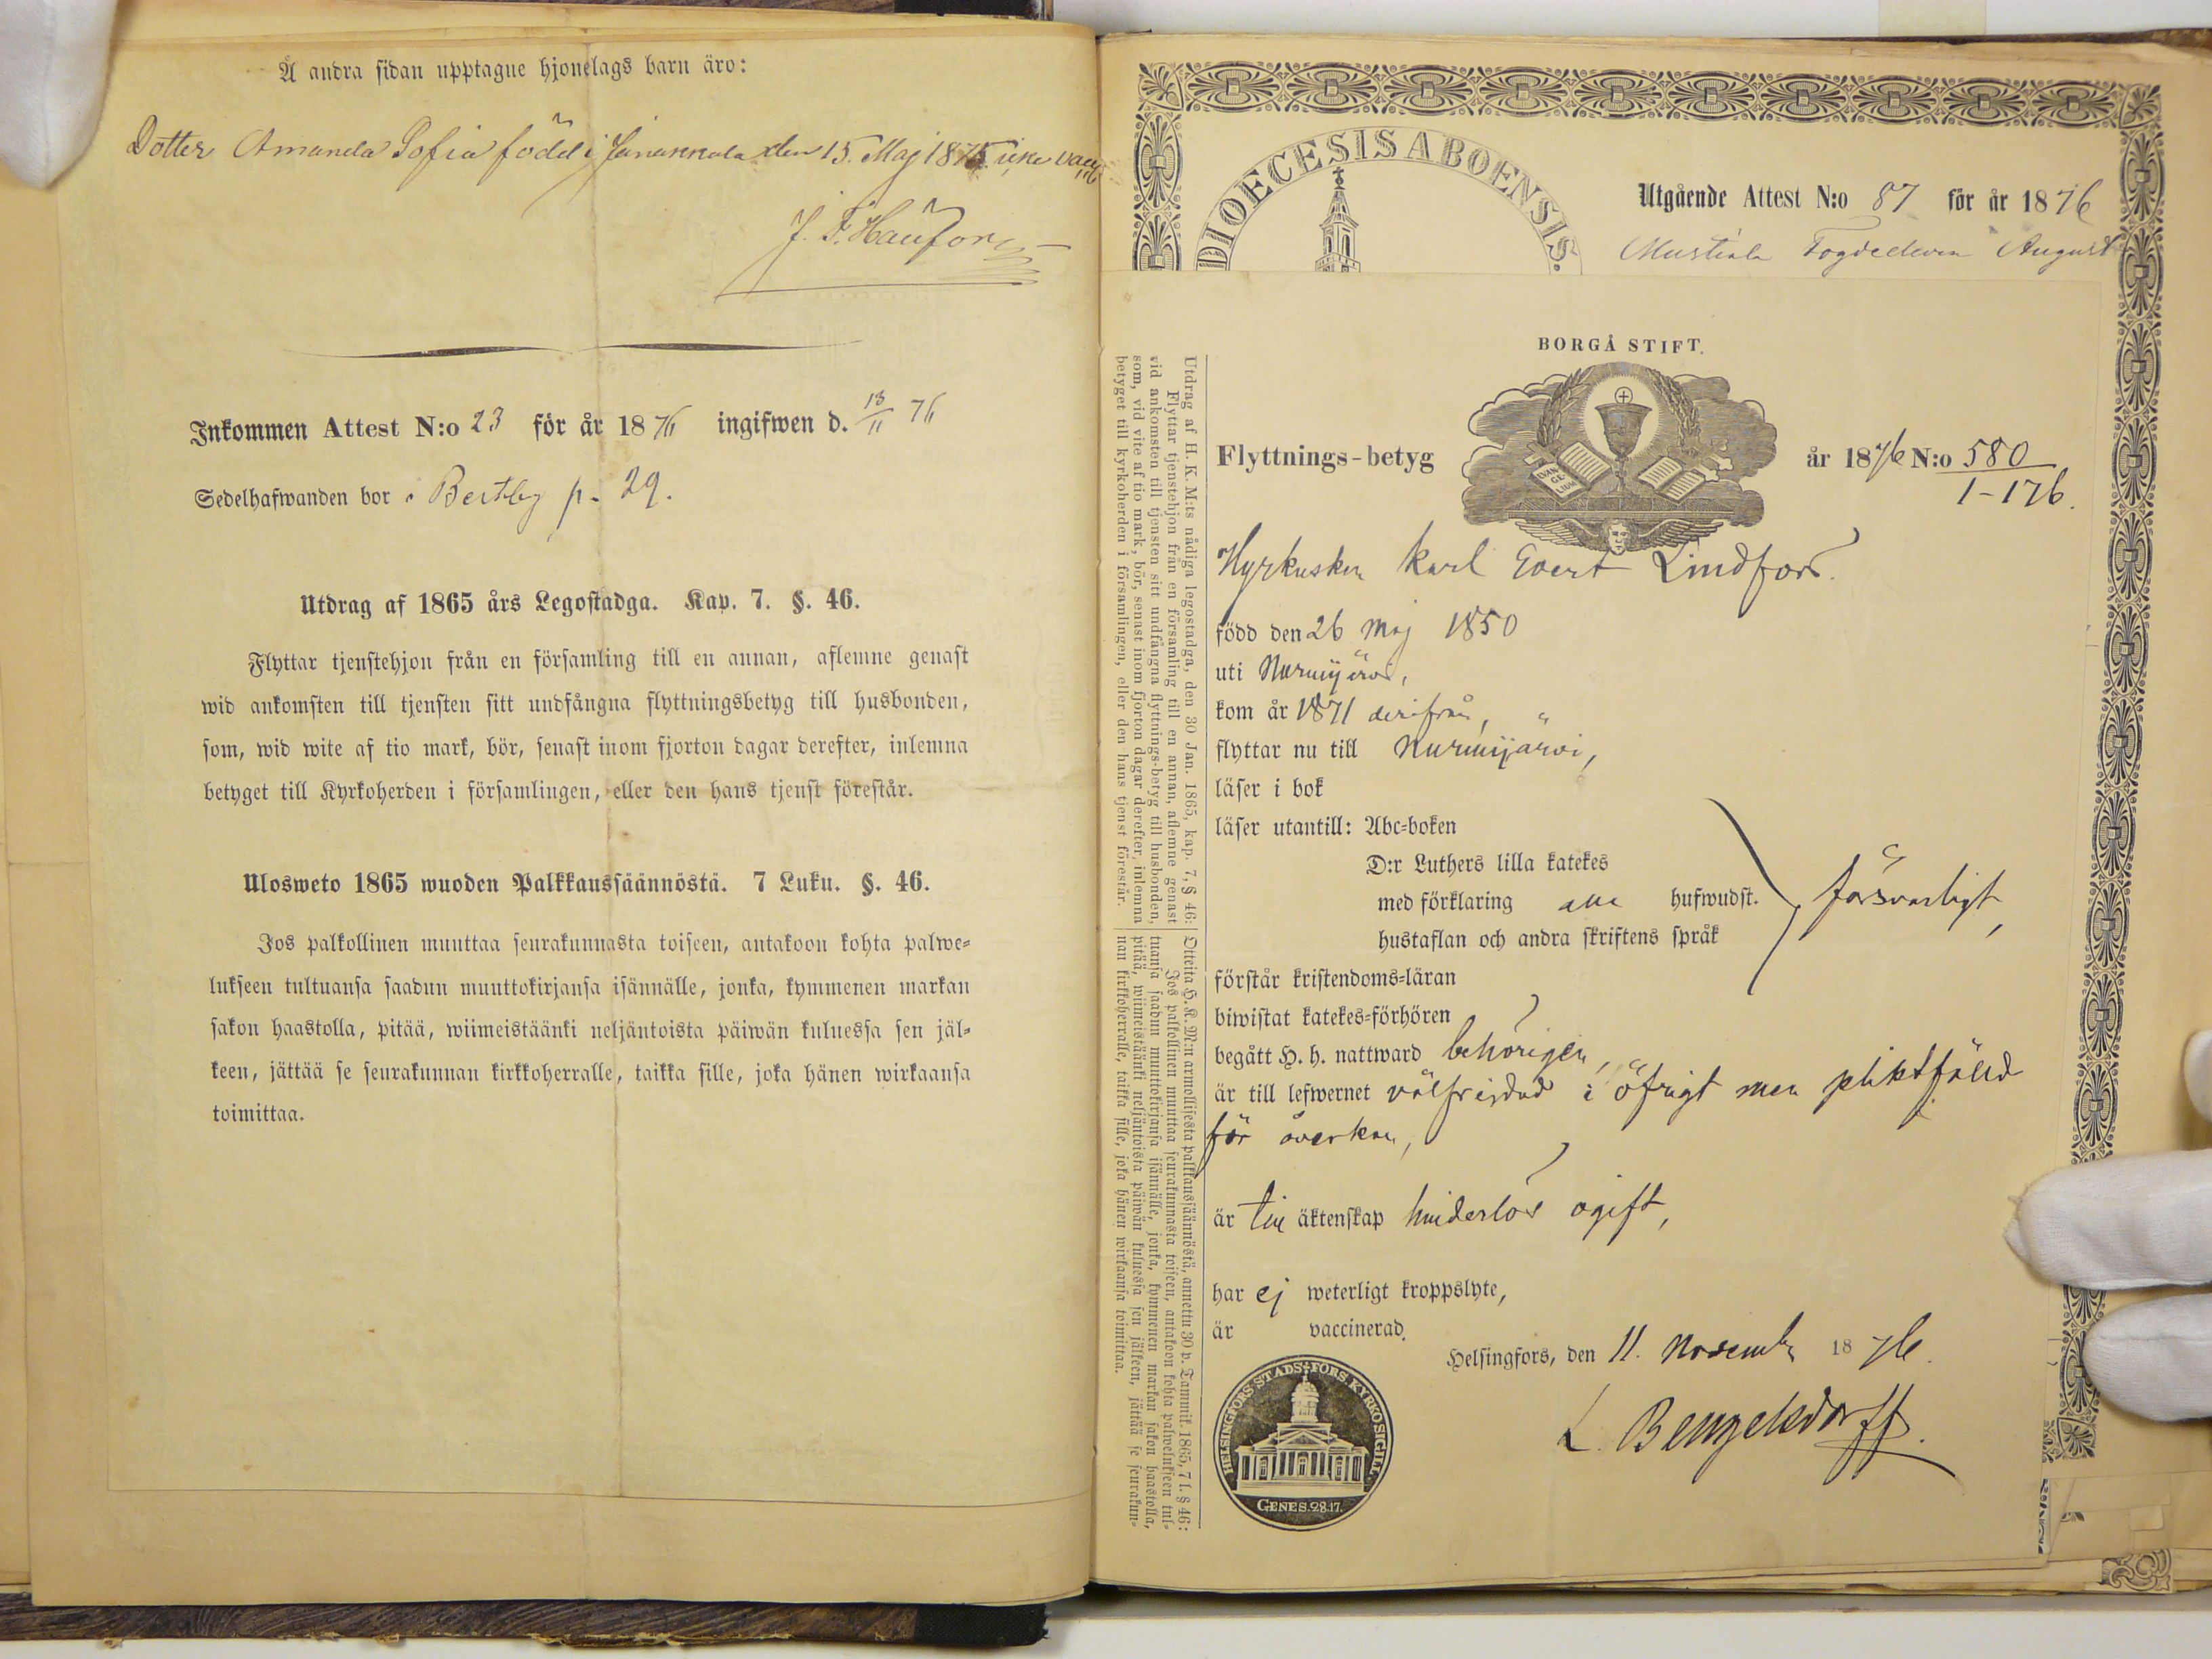 Å andra sidan upptagne hjonelags barn äro:
Dotter Amanda Sofia född i Janakkala den 15. Maj 1875 icke vacc
J. F. Haufor
Inkommen Attest N:o 23 för år 1876 ingifwen d. 13/11 76
Sedelhafwanden bor i Bertby p. 29.
Utdrag af 1865 års Legostadga. Kap. 7. §. 46.
Flyttar tjenstehjon från en församling till en annan, aflemne genast
wid ankomsten till tjensten sitt undfångna flyttningsbetyg till husbonden,
som, wid wite af tio mark, bör, senast inom fjorton dagar derefter, inlemna
betyget till Kyrkoherden i församlingen, eller den hans tjenst förestår.
Ulosweto 1865 wuoden Palkkaussäännöstä. 7 Luku. §. 46.
Jos palkollinen muuttaa seurakunnasta toiseen, antakoon kohta palwe-
lukseen tultuansa saadun muuttokirjansa isännälle, jonka, kymmenen markan
sakon haastolla, pitää, wiimeistäänki neljäntoista päiwän kuluessa sen jäl-
keen, jättää se seurakunnan kirkkoherralle, taikka sille, joka hänen wirkaansa
toimittaa.
DIOECESIS ABOENSIS.
Utgående Attest N:o 87 för år 1876
Mustiala August
Utdrag af H. K. M:ts nådiga legostadga, den 30 Jan. 1865, kap. 7, § 46:
Flyttar tjenstehjon från en församling till en annan, aflemne genast
vid ankomsten till tjensten sitt undfångna flyttnings-betyg till husbonden,
som, vid vite af tio mark, bör, senast inom fjorton dagar derefter, inlemna
betyget till kyrkoherden i församlingen, eller den hans tjenst förestår.
Otteita H. K. M:n armollisesta palkkaussäännöstä, annettu 30 p. Tammik. 1865, 7 l. § 46:
Jos palkollinen muuttaa seurakunnasta toiseen, antakoon kohta palwelukseen tul-
tuansa saadun muuttokirjansa isännälle, jonka, kymmenen markan sakon haastolla,
pitää, wiimeistäänki neljäntoista päiwän kuluessa sen jälkeen, jättää se seurakun-
nan kirkkoherralle, taikka sille, joka hänen wirkaansa toimittaa.
BORGÅ STIFT.
EVAN GE LIUM
Flyttnings-betyg år 1876 N:o 580
1-176.
Hyrkusken Karl Evert Lindfors.
född den 26 Maj 1850
uti Nurmijärvi,
kom år 1871 derifrån,
flyttar nu till Nurmijärvi,
läser i bok
läser utantill: Abc-boken
D:r Luthers lilla katekes
med förklaring alla hufwudst.
försvarligt,
hustaflan och andra skriftens språk
förstår kristendoms-läran
biwistat katekes-förhören
begått H. h. nattward behörigen,
är till lefwernet välfrejdad i öfrigt men pliktfälld
för åverkan,
är till äktenskap hinderlös ogift,
har ej weterligt kroppslyte,
är vaccinerad.
Helsingfors, den 11. Novemb. 1876.
L. Bengelsdorff.
HELSINGFORS STADS-FÖRS. KYRKOSIGILL.
GENES. 28.17.